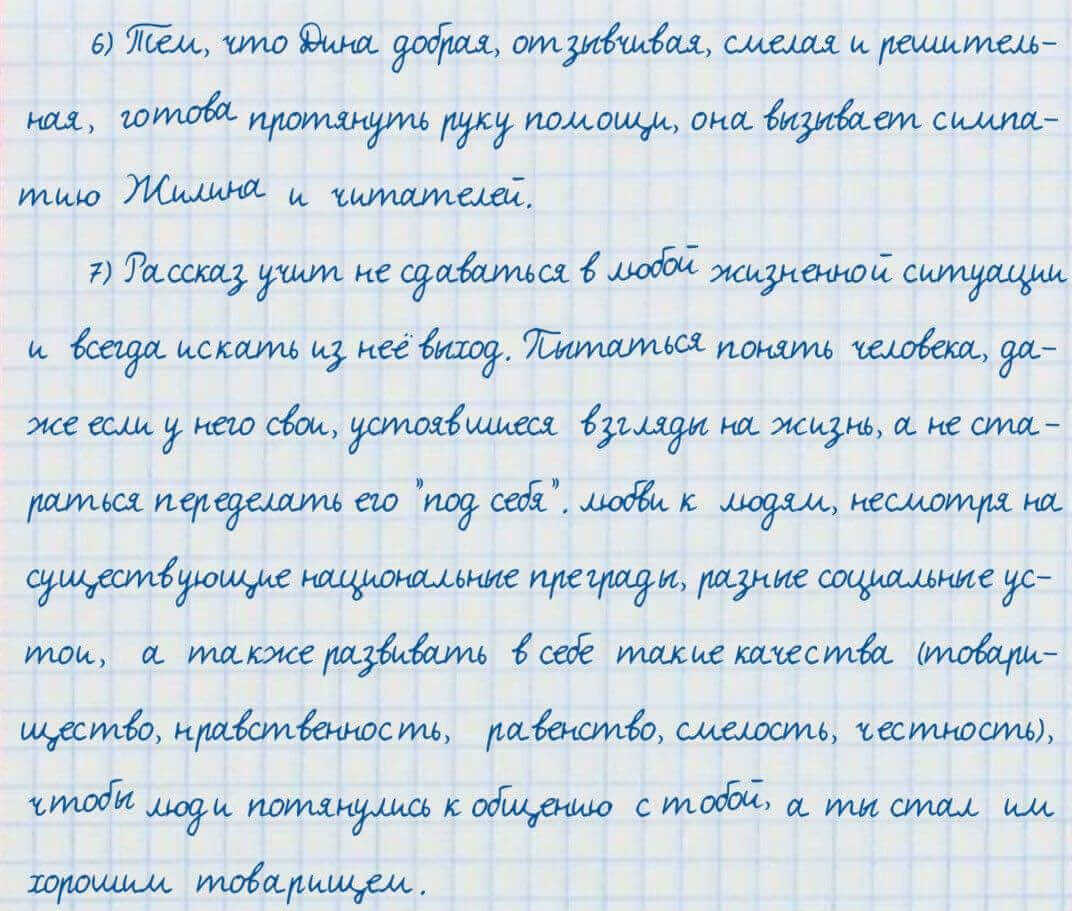 6) Тем, что Дина добрая, отзывчивая, смелая и решитель-
ная, готова протянуть руку помощи, она вызывает симпа-
тию Жилина и читателей.
7) Рассказ учит не сдаваться в любой жизненной ситуации
и всегда искать из неё выход. Пытаться понять человека, да-
же если у него свои, устоявшиеся взгляды на жизнь, а не ста-
раться переделать его "под себя". любви к людям, несмотря на
существующие национальные преграды, разные социальные ус-
тои, а также развивать в себе такие качества (товари-
щество, нравственность, равенство, смелость, честность),
чтобы люди потянулись к общению с тобой, а ты стал им
хорошим товарищем.